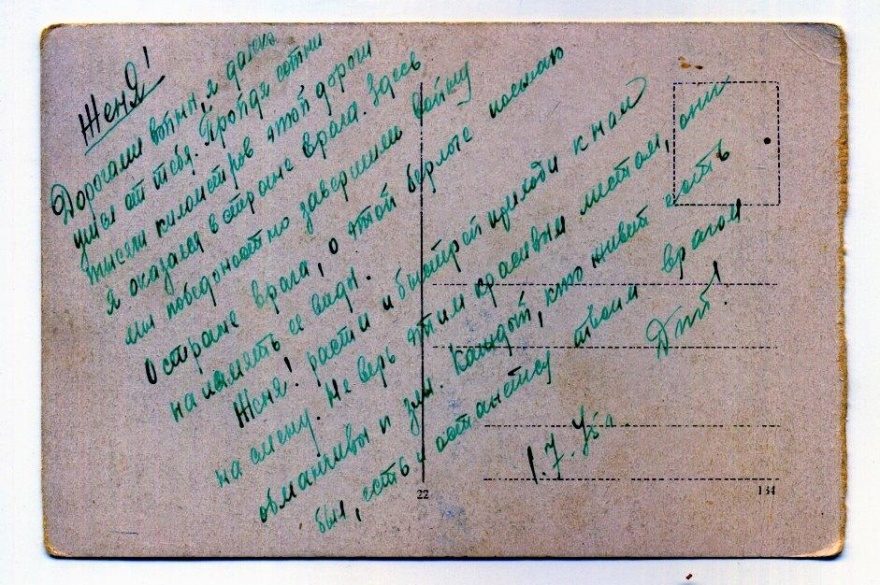 Женя!
Дорогами войны, я далеко
ушел от тебя. Пройдя сотни
тысячи километров этой дороги
я оказался в стране врага. Здесь
мы победоностно завершили войну
О стране врага, о этой посылаю
на память ее виды.
Женя! расти и быстрей приходи к нам
на смену. Не верь этим красивым местам, они
обманчивы и злы. Каждый, кто живет здесь
был, есть и останется твоим врагом
1.7.45г.
22
134